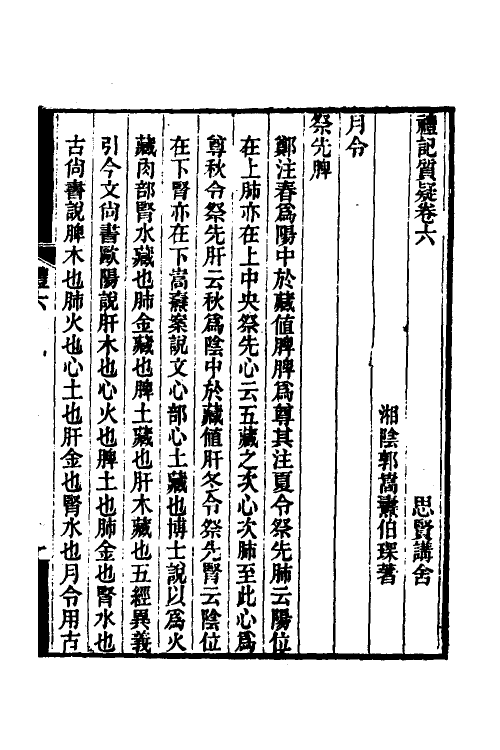 禮記質疑卷六
思賢講舍
湘陰郭嵩燾伯琛著
月令
祭先脾
鄭注春爲陽中於藏値脾脾爲尊其注夏令祭先肺云陽位
在上肺亦在上中央祭先心云五藏之次心次肺至此心爲
尊秋令祭先肝云秋爲陰中於藏値肝冬令祭先腎云陰位
在下腎亦在下嵩燾案說文心部心土藏也博士說以爲火
藏肉部腎水藏也肺金藏也脾土藏也肝木藏也五經異義
引今文尙書歐陽說肝木也心火也脾土也肺金也腎水也
古尙書說脾木也肺火也心土也肝金也腎水也月令用古
禮六
一